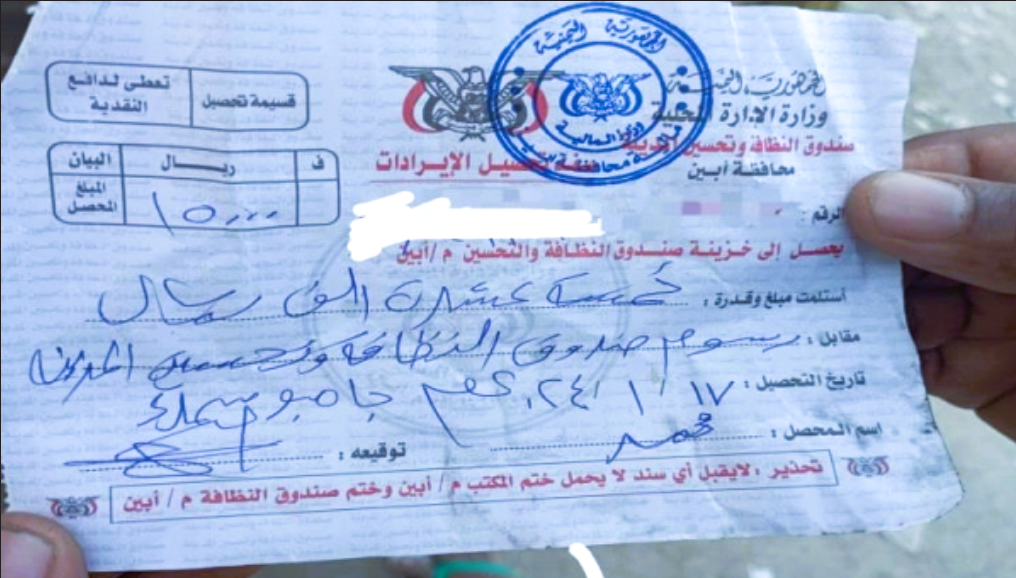 الجمهورية اليمنية
وزارة الإدارة المحلية
صندوق النظافة وتحسين المدينة
محافظة أبين
الجمهورية اليمنية
وزارة المالية
تعطى لدافع النقدية
قسيمة تحصيل
تحصيل الإيرادات
البيان ريال ف
المبلغ المحصل ١٥٠٠٠
الرقم :
يحصل إلى خزينة صندوق النظافة والتحسين م / أبين
أستلمت مبلغ وقدرة : خمسة عشرة الف ريال
مقابل : رسوم صندوق النظافة وتحسين المدينة
تاريخ التحصيل : ١٧ / ١ / ٢٠٢٤م
اسم المحصل : محمد توقيعه :
تحذير : لايقبل أي سند لا يحمل ختم المكتب م / أبين وختم صندوق النظافة م / أبين